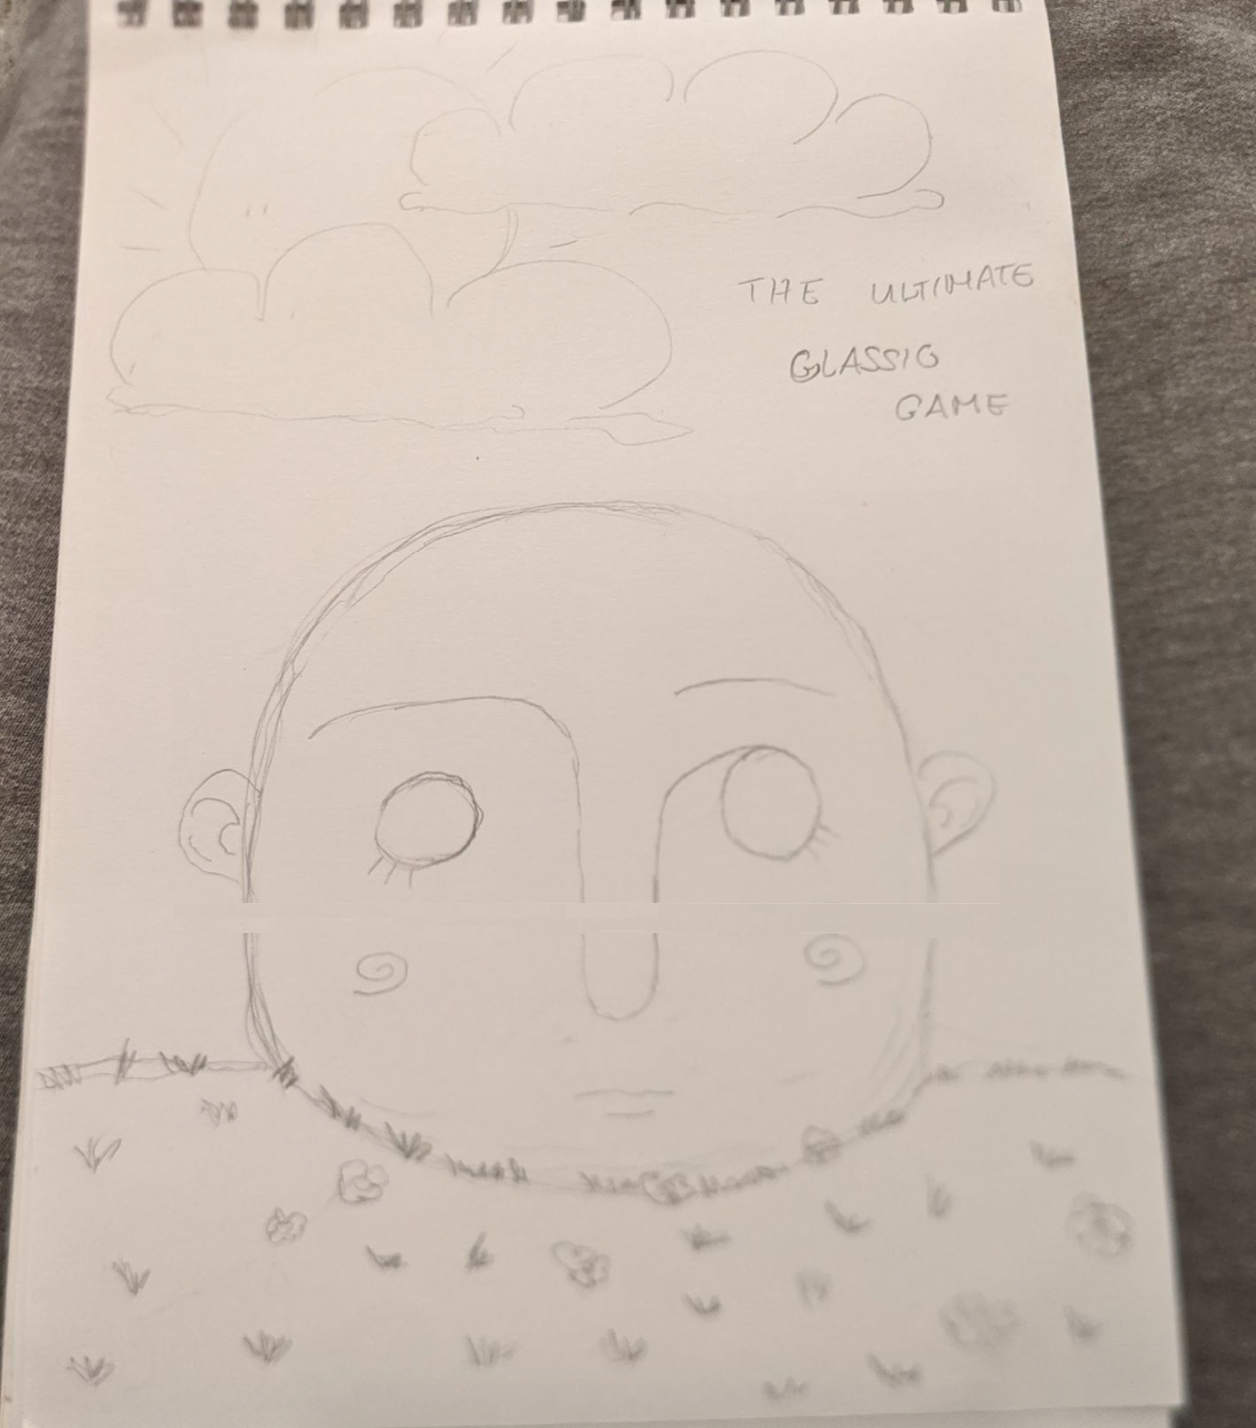 THE ULTIMATE
GLASSIG
GAME